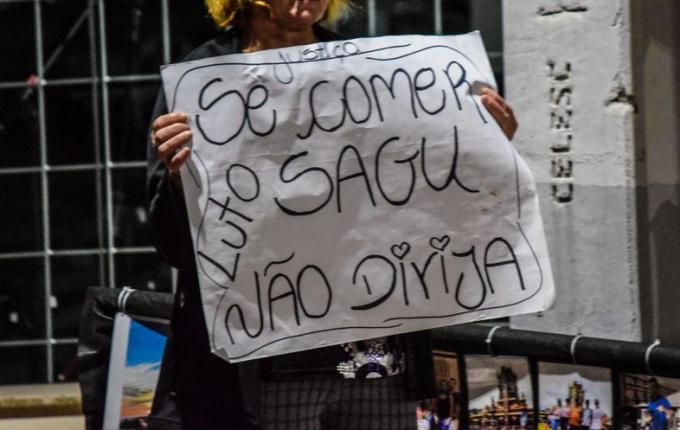 justiça
Se comer
Luto
SAGU
NÃO DIRIJA
CELESC